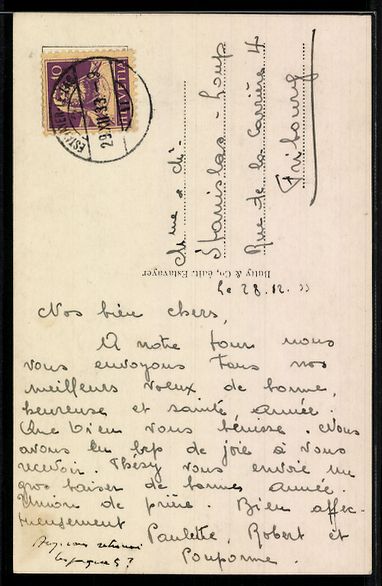 10
HELVETIA
29.XII.33
Mme & M.
Stanislas Loup
Rue de la Carrière 4
Fribourg
Butty & Co, édit. Estavayer
Le 28.12.33
Nos bien chers,
A notre tour nous
vous envoyons tous nos
meilleurs voeux de bonne,
heureuse et sainte année.
Que Dieu vous bénisse. Nous
avons eu bcp de joie à vous
recevoir. Thésy vous envoie un
gros baiser de bonne année.
Union de prière. Bien affec-
tueusement
Paulette, Robert et
Pouponne.